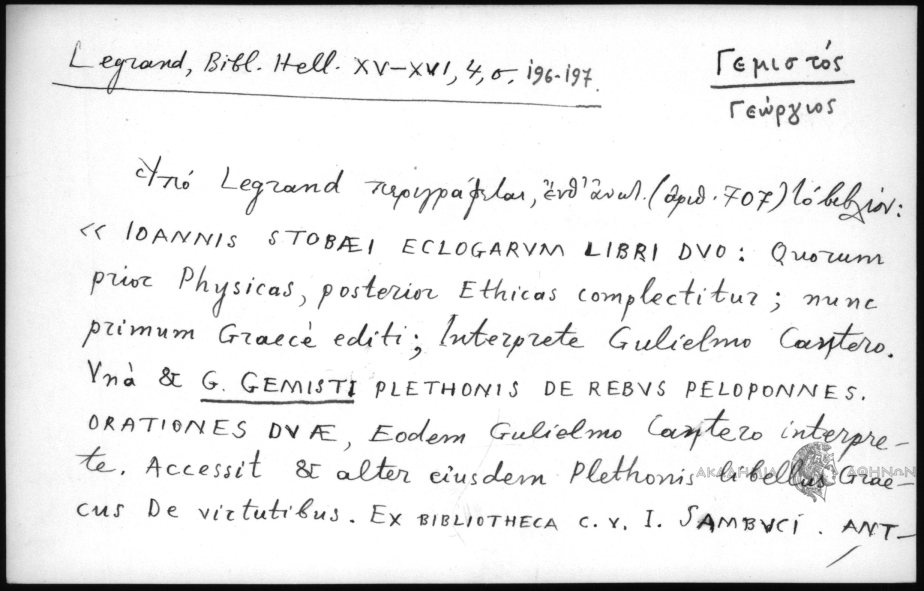 Legrand, Bibl. Hell. XV-XVI, 4, σ. 196-197.
Γεμιστός
Γεώργιος
Ὑπό Legrand περιγράφεται, ἔνθ' ἀνωτ. (ἀριθ. 707) τό βιβλίον:
« IOANNIS STOBÆI ECLOGARVM LIBRI DVO: Quorum
prior Physicas, posterior Ethicas complectitur; nunc
primum Graecè editi; Interprete Gulielmo Cantero.
Vnà & G. GEMISTI PLETHONIS DE REBVS PELOPONNES.
ORATIONES DVÆ, Eodem Gulielmo Cantero interpre-
te. Accessit & alter eiusdem Plethonis libellus Grae-
cus De virtutibus. EX BIBLIOTHECA C. V. I. SAMBVCI. ANT-
ΑΚΑΔΗΜΙΑ ΑΘΗΝΩΝ